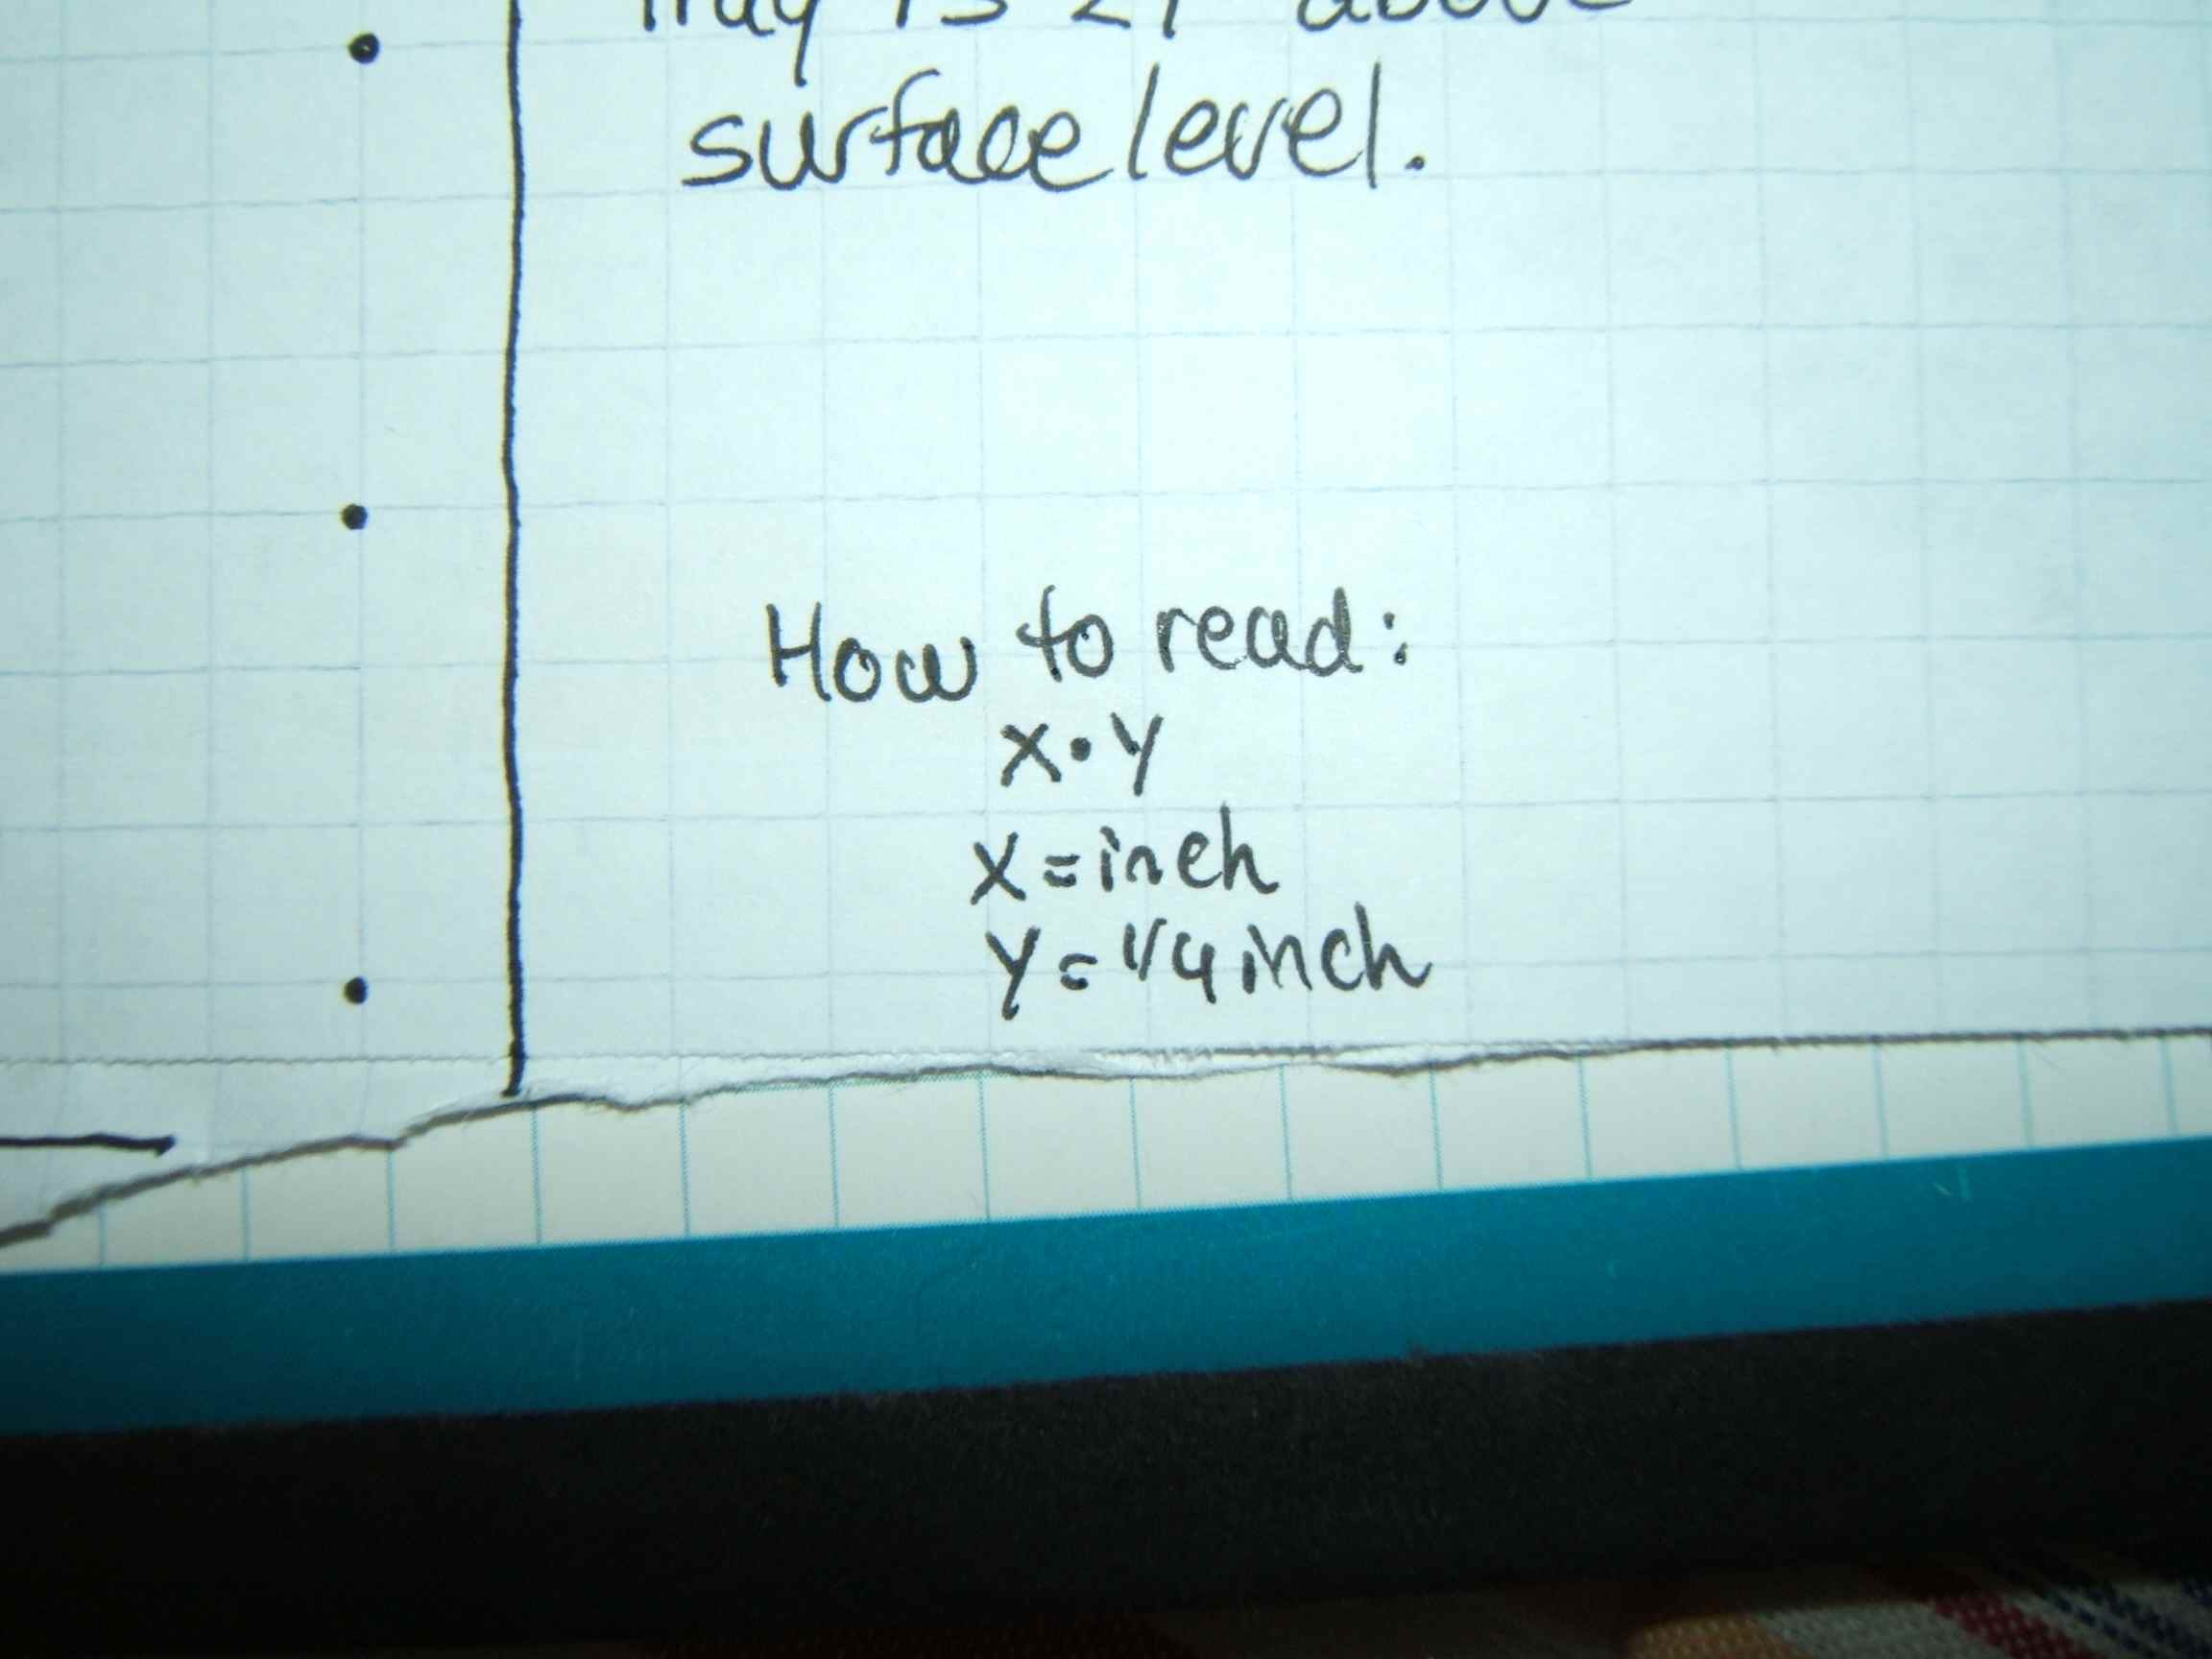 surface level.
How to read:
X•Y
X=inch
Y=1/4inch